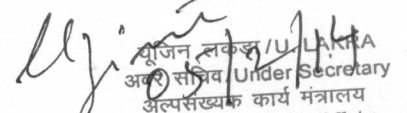 यूजिन लकड़ा/U. LAKRA
अवर सचिव/Under Secretary
अल्पसंख्यक कार्य मंत्रालय
05/2/14